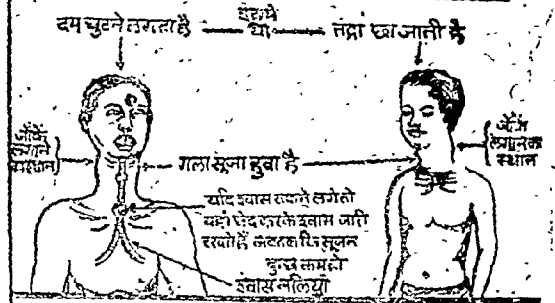 दम घुटने लगता है
इसमें
या
तंद्रा छा जाती है
जोंकें
लगाने
का स्थान
गला सूजा हुवा है
जोंकें
लगाने का
स्थान
यदि श्वास रुकने लगे तो
यहां छेद करके श्वास जारी
रखते हैं जब तक कि सूजन
कुछ कम हो
श्वास नलियां